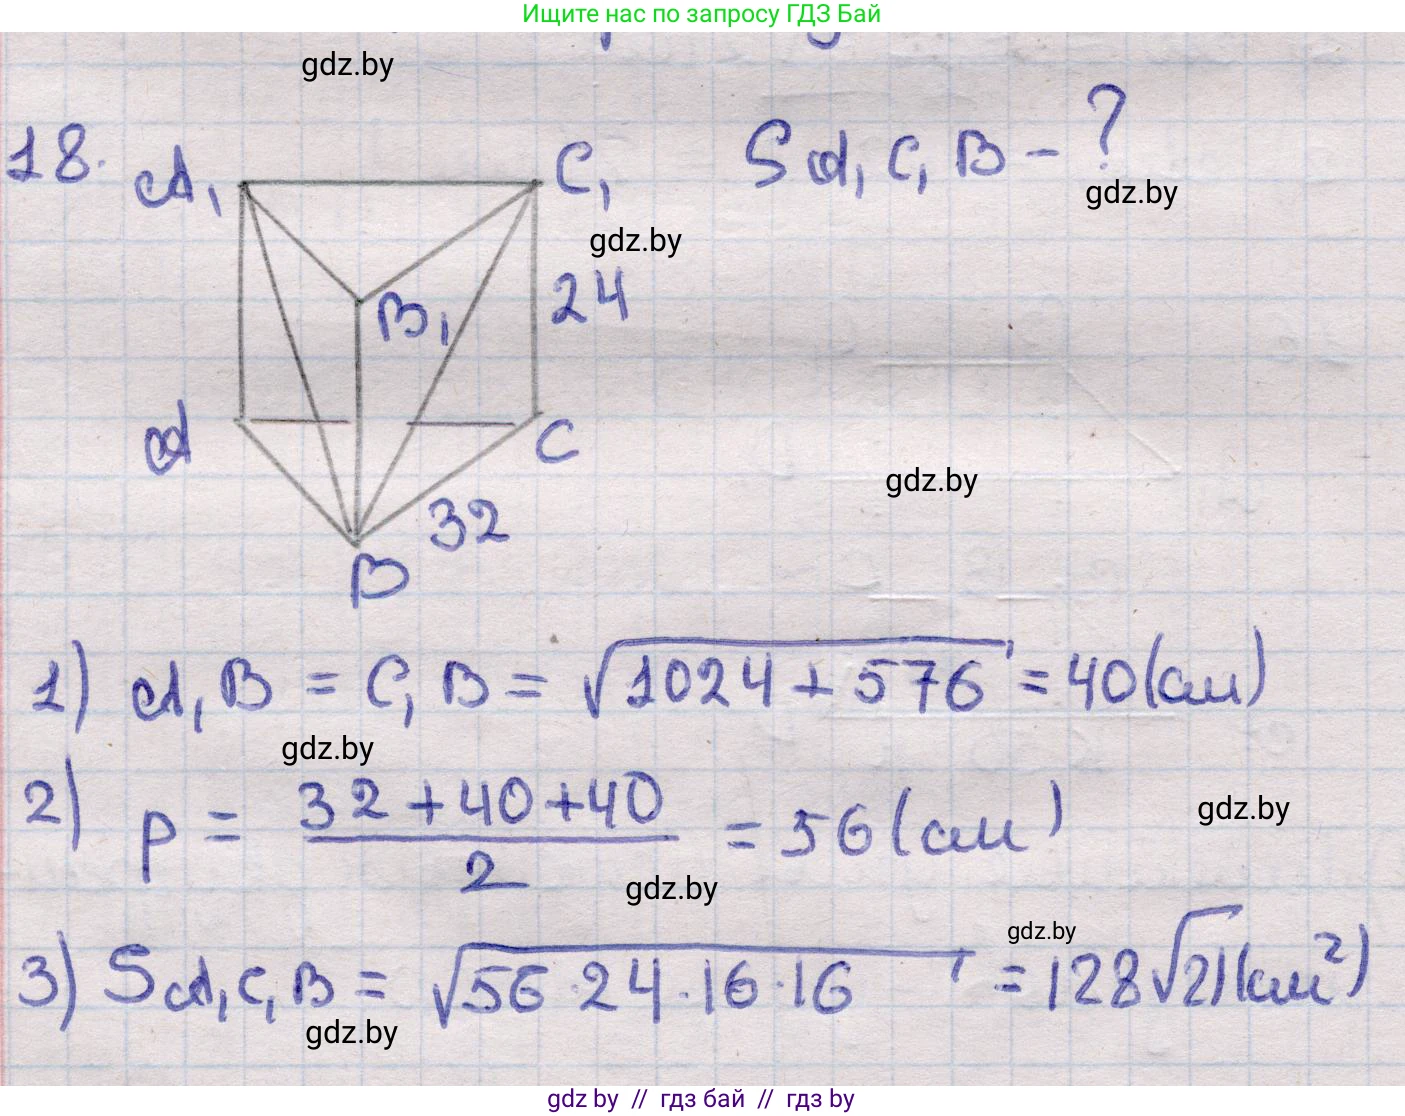 Ищите нас по запросу ГДЗ Бай
gdz.by
18.
A₁
C₁
S A₁C₁B - ?
gdz.by
gdz.by
B₁
24
A
C
gdz.by
32
B
1) A₁B = C₁B = √1024 + 576 = 40 (см)
gdz.by
2) p = (32 + 40 + 40)/2 = 56 (см)
gdz.by
gdz.by
gdz.by
3) S A₁C₁B = √56 · 24 · 16 · 16 = 128√21 (см²)
gdz.by
gdz by // гдз бай // гдз by